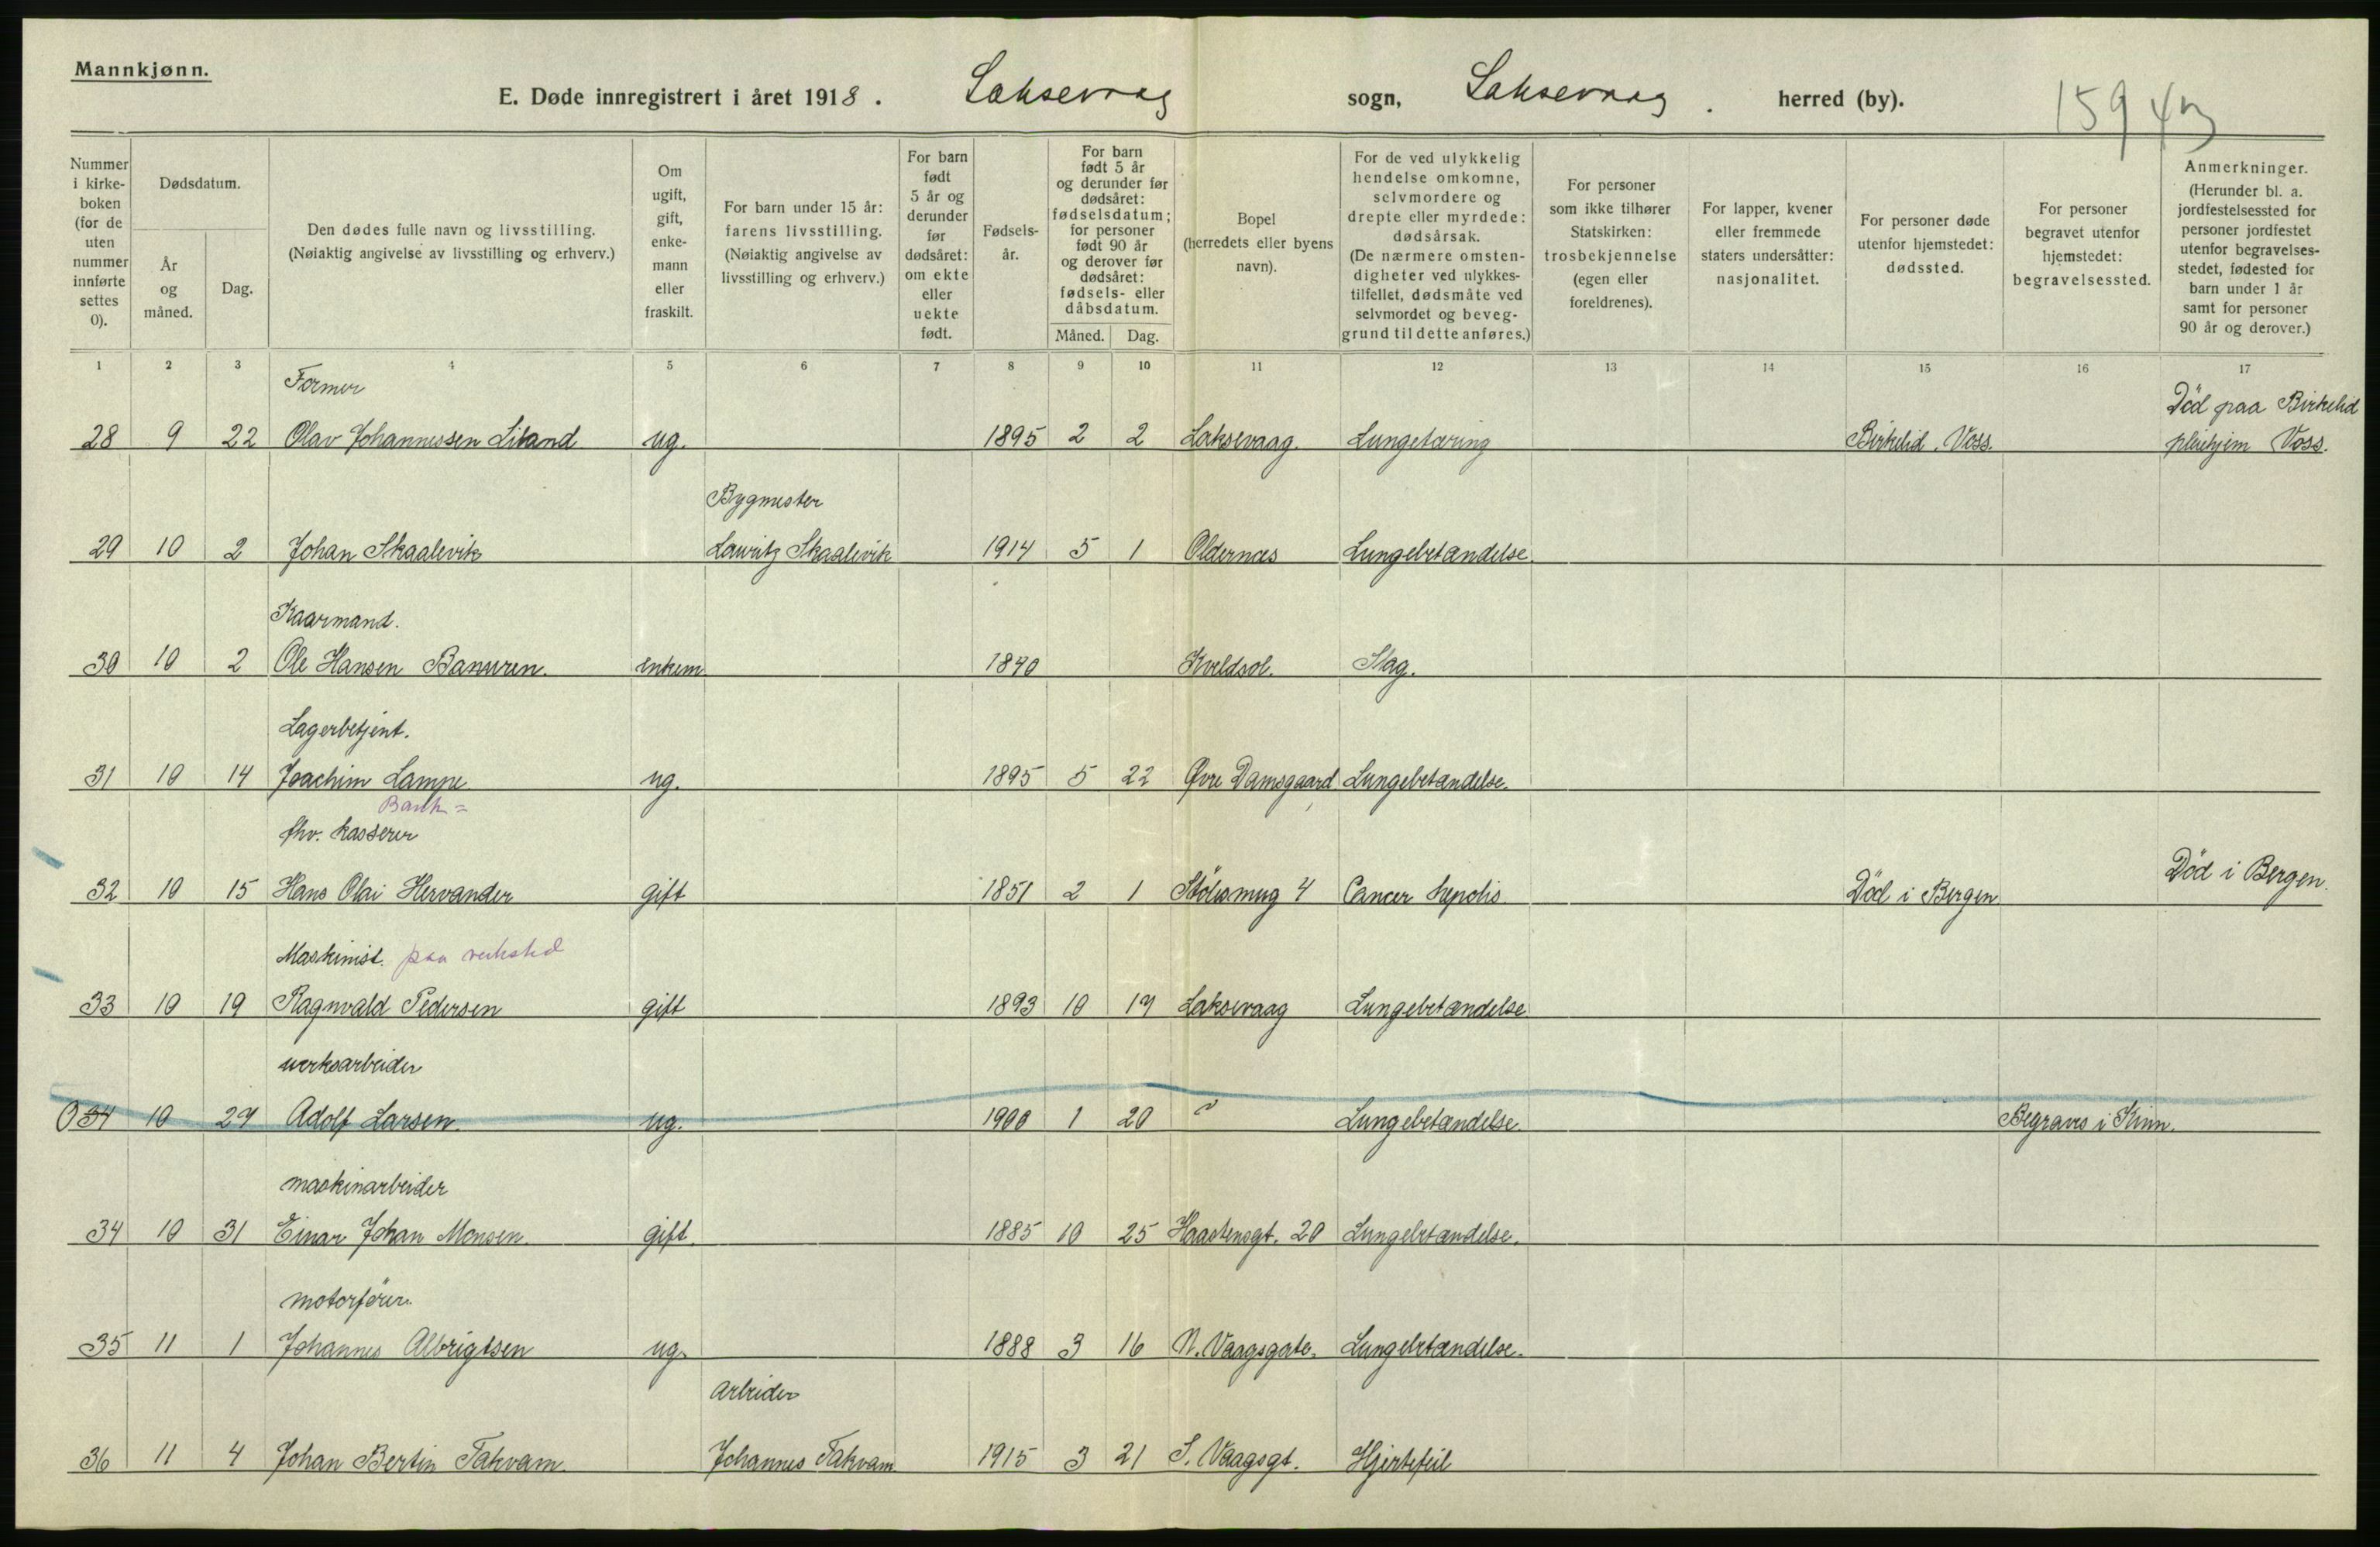 Mannkjønn.
E. Døde innregistrert i året 1918. Laksevaag sogn, Laksevaag. herred (by). 159
Nummer i kirkeboken (for de uten nummer innførte settes 0).
Dødsdatum.
År og måned.
Dag.
Den dødes fulle navn og livsstilling.
(Nøiaktig angivelse av livsstilling og erhverv.)
Om ugift, gift, enkemann eller fraskilt.
For barn under 15 år: farens livsstilling. (Nøiaktig angivelse av livsstilling og erhverv.)
For barn født 5 år og derunder før dødsåret: om ekte eller uekte født.
Fødselsår.
For barn født 5 år og derunder før dødsåret: fødselsdatum; for personer født 90 år og derover før dødsåret: fødsels- eller dåbsdatum.
Måned. Dag.
Bopel (herredets eller byens navn).
For de ved ulykkelig hendelse omkomne, selvmordere og drepte eller myrdede: dødsårsak. (De nærmere omstendigheter ved ulykkestilfellet, dødsmåte ved selvmordet og beveggrund til dette anføres.)
For personer som ikke tilhører Statskirken: trosbekjennelse (egen eller foreldrenes).
For lapper, kvener eller fremmede staters undersåtter: nasjonalitet.
For personer døde utenfor hjemstedet: dødssted.
For personer begravet utenfor hjemstedet: begravelsessted.
Anmerkninger. (Herunder bl. a. jordfestelsessted for personer jordfestet utenfor begravelsesstedet, fødested for barn under 1 år samt for personer 90 år og derover.)
1 2 3 4 5 6 7 8 9 10 11 12 13 14 15 16 17
Former
Død paa Birkelid
28 9 22 Olav Johannessen Liland ug. 1895 2 2 Laksevaag. Lungetæring Birkelid. Voss. pleiehjem Voss.
Bygmester
29 10 2 Johan Skaalevik Lauritz Skaalevik 1914 5 1 Oldernæs Lungebetændelse.
Kaarmand.
30 10 2 Ole Hansen enkem. 1840 Kveldsol. Slag.
Lagerbetjent.
31 10 14 Joachim Lampe ug. 1895 5 22 Øvre Damsgaard Lungebetændelse.
Bank=
fhv. kasserer
Død i Bergen.
32 10 15 Hans Olai Hervander gift 1851 2 1 4 Cancer hepatis. Død i Bergen
Maskinist. paa verksted
33 10 19 Ragnvald Pedersen gift 1893 10 17 Laksevaag Lungebetændelse
verksarbeider
0 34 10 27 Adolf Larsen. ug. 1900 1 20 " Lungebetændelse. Begraves i Kinn.
maskinarbeider
34 10 31 Einar Johan Monsen. gift. 1885 10 25 Haastensgt. 20 Lungebetændelse.
motorfører.
35 11 1 Johannes Albrigtsen ug. 1888 3 16 N. Vaagsgate. Lungebetændelse.
Arbeider
36 11 4 Johan Bertin Takvam. Johannes Takvam 1915 3 21 S. Vaagsgt. Hjertefeil